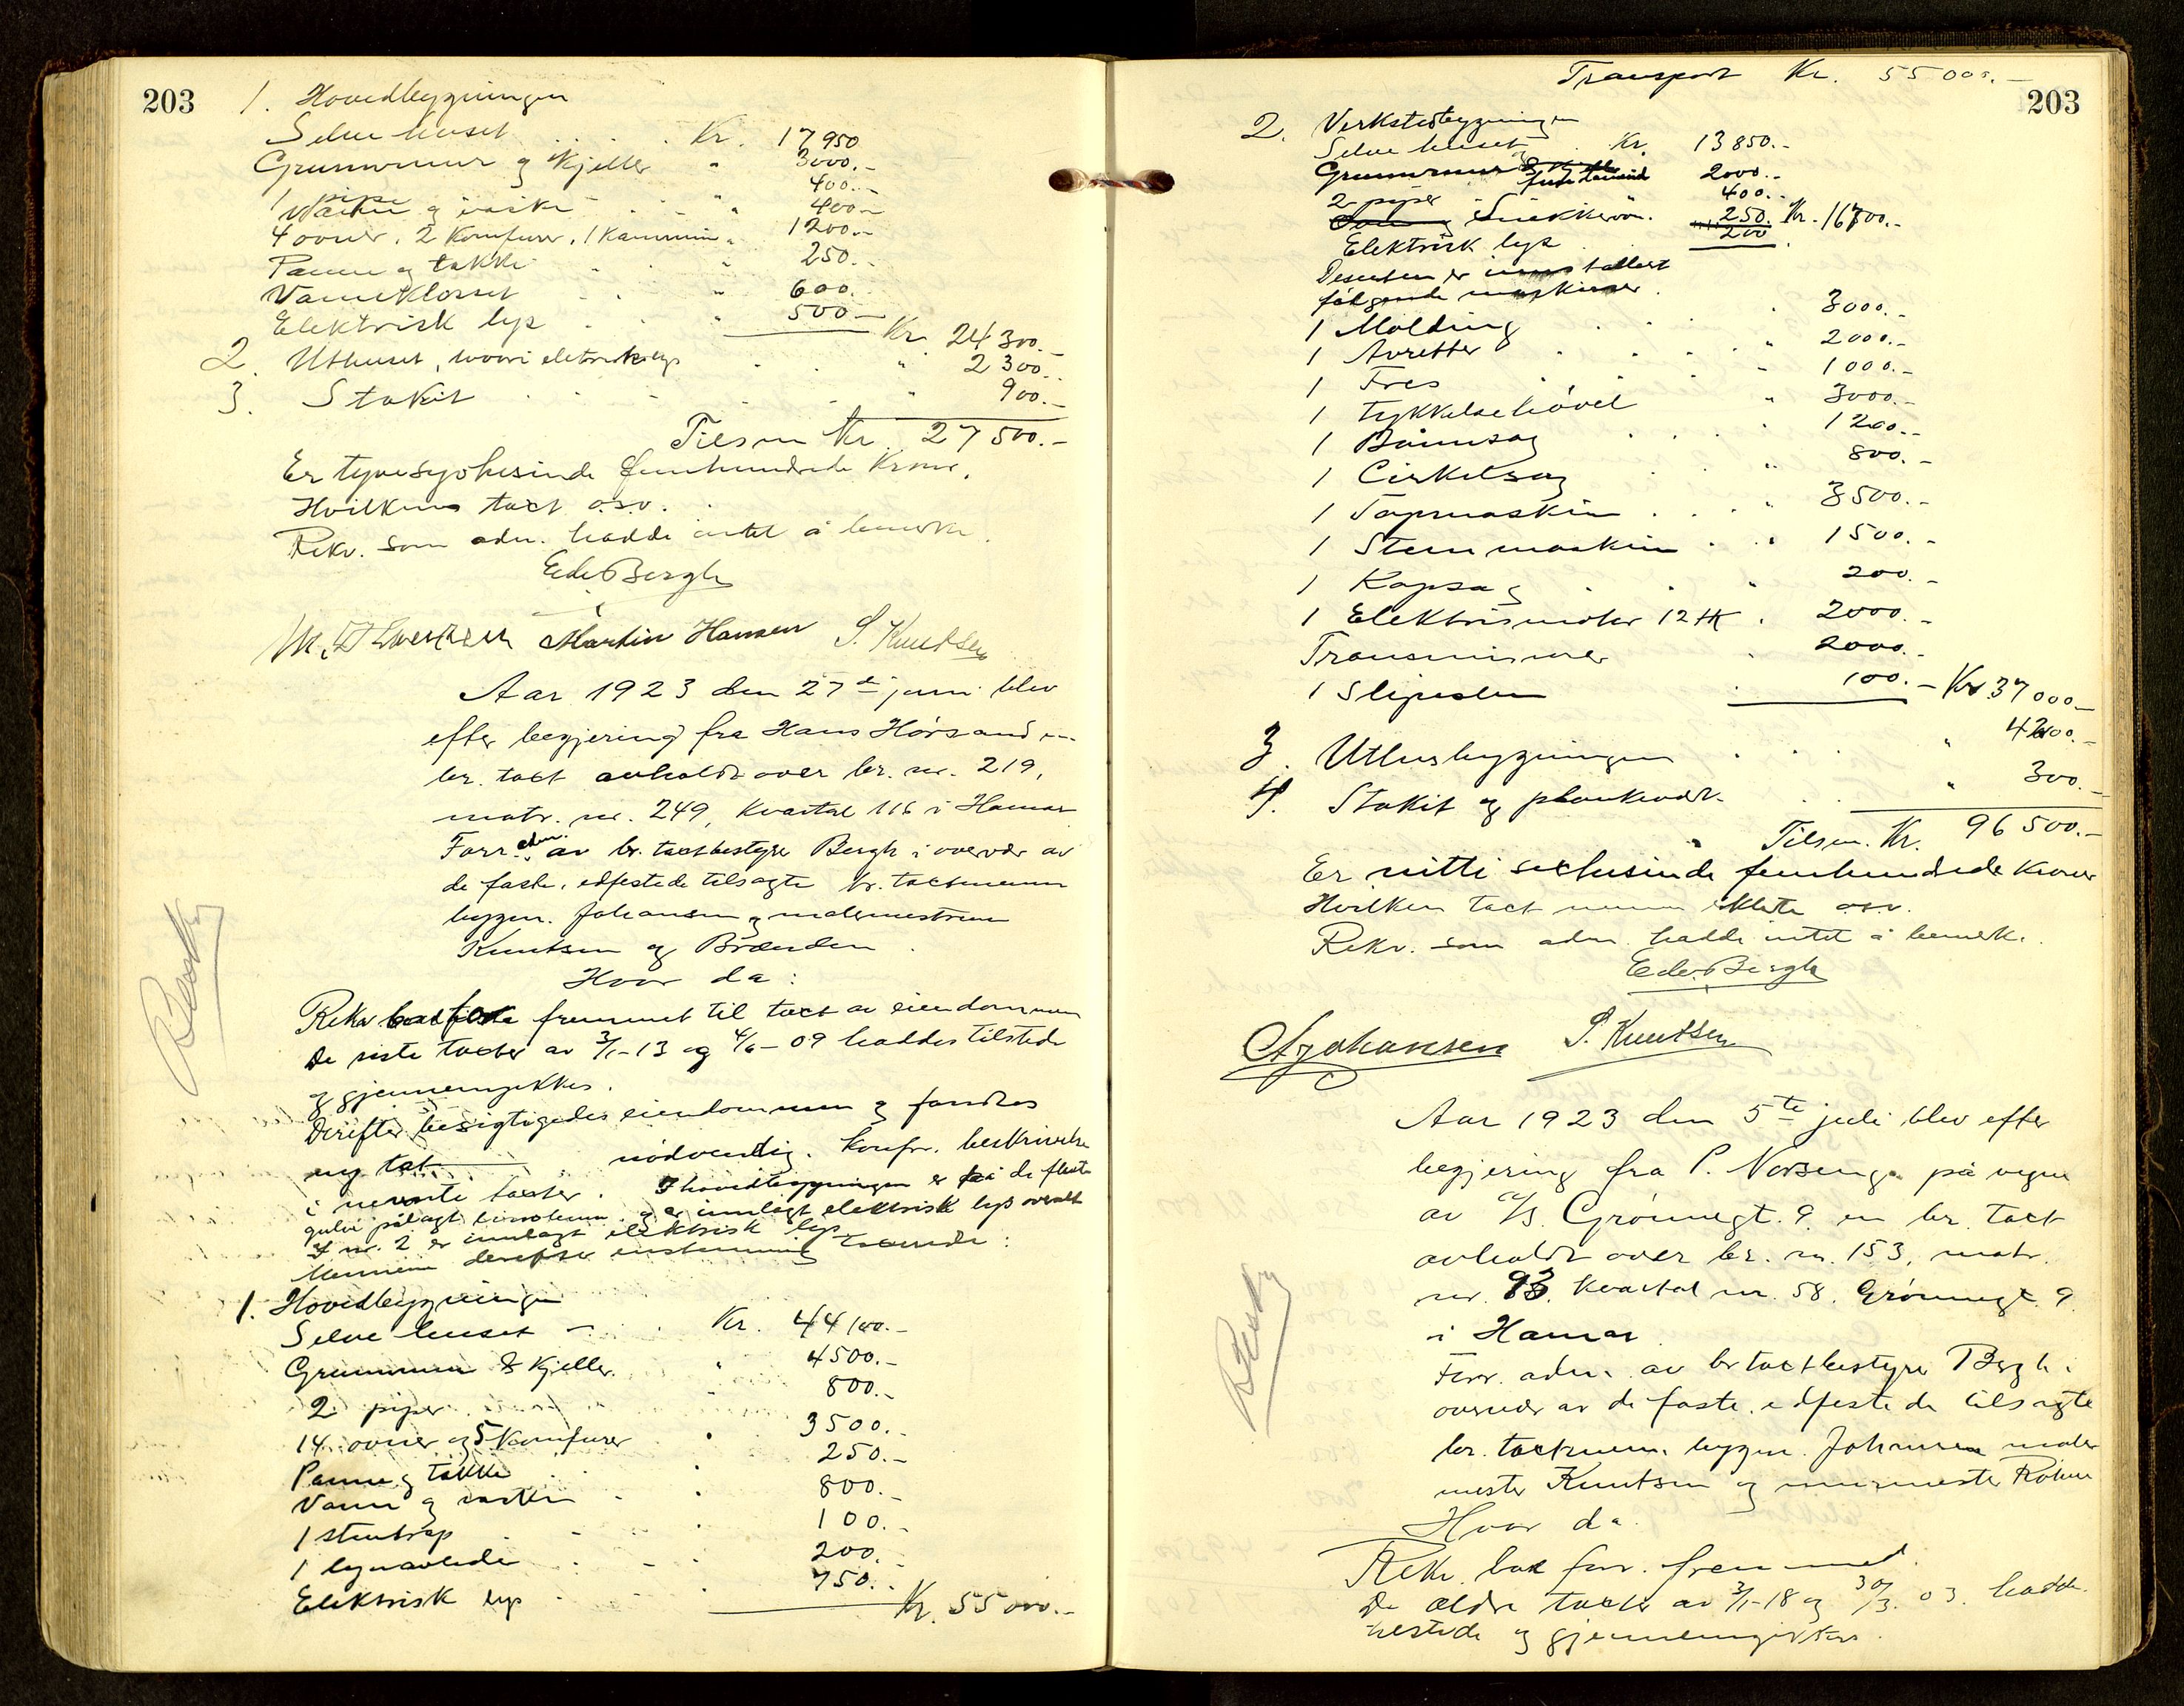 203
1. Hovedbygningen
Selve huset . . . . Kr. 17950
Grunnmur og Kjeller " 3000.-
1 pipe " 400.-
Vann og vaske . . " 400.-
4 ovner, 2 Komfurer, 1 Kammin " 1200.-
Panne og takke . . " 250.-
Vannklosset . . " 600.-
Elektrisk lys . . " 500.- Kr. 24300.-
2. Uthuset, hvori eletrisk lys . . " 2300.-
3. Stakit . . . . " 900.-
Tilsm Kr. 27500.-
Er tyvesyvtusinde femhundrede Kroner.
Hvilken taxt o.s.v.
Rekv. som adm. hadde intet å bemerke.
Edv. Bergh
Martin Hansen S. Knudsen
Aar 1923 den 27de juni blev
efter begjering fra Hans Hörsand en
br. taxt avholdt over br. nr. 219,
matr. nr. 249, Kvartal 116 i Hamar
Forr. adm. av br. taxtbestyrer Bergh i overvær av
de faste, edfestede tilsagte br. taxtmenn
byggm. Johansen og malermestrene
Knutsen og Brænden.
Hvor da:
Rekv. fremmet til taxt av eiendommen
De siste taxter av 3/1-13 og 4/6-09 haddes tilstede
og gjennemgikkes.
Derefter besigtigedes eiendommen og fandtes
ny tat nödvendig. Konfr. beskrivelse
i nevnte taxter. I hovedbygningen er på de fleste
gulver pålagt linoleum og er innlagt elektrisk lys overalt
I nr. 2 er innlagt elektrisk lys
Mennene derefter enstemmig taxerede:
1. Hovedbygningen
Selve huset - . . Kr. 44100.-
Grunnmur & Kjeller. " 4500.-
2 piper . . . " 800.-
14 ovner og 5 Komfurer " 3500.-
Panne og takke . . " 250.-
Vann og vasker . . " 800.-
1 stentrap . . . " 100.-
1 lynavleder . . . " 200.-
Elektrisk lys . . . " 750.- Kr. 55000.-
Transport Kr. 55000.-
203
2. Verkstedbygningen
Selve huset . Kr. 13850.-
Grunnmur og fundament 2000.-
2 piper 400.-
Snekkerovn. 250. Kr. 16700.-
Elektrisk lys . 200
Desuten er innstallert
følgende maskiner.
1 Molding . . . " 3000.-
1 Avretter . . . " 2000.-
1 Fres . . . " 1000.-
1 tykkelsehövel " 3000.-
1 Båndsag . . . " 1200.-
1 Cirkelsag . . " 800.-
1 Tapmaskin . . . " 3500.-
1 Stemmaskin . . " 1500.-
1 Kapsag . . " 200.-
1 Elektrismotor 12 HK . 2000.-
Transmisioner . 2000.-
1 Slipesten . 100.- Kr 37000.-
3. Uthusbygningen . . . " 4200.-
4. Stakit og plankverk. . . " 300.-
Tilsm. Kr. 96500.-
Er nitti sextusinde femhundrede kroner
Hvilken taxt osv.
Rekv. som adm. hadde intet å bemerke.
Edv. Bergh
A Johansen S. Knudsen
Aar 1923 den 5te juli blev efter
begjering fra P. Norseng på vegne
av A/S. Grönnegt. 9. en br. taxt
avholdt over br. nr. 153, matr.
nr. 93. Kvartal nr. 58. Grönnegt. 9.
i Hamar.
Forr. adm. av br taxtbestyrer Bergh i
overvær av de faste, edfestede tilsagte
br. taxtmenn byggm. Johansen maler
mester Knutsen og murmester
Hvor da.
Rekv. fremmet.
De ældre taxter av 3/1-18 og 30/3. 03. hadde.
tilstede og gjennemgikkes.